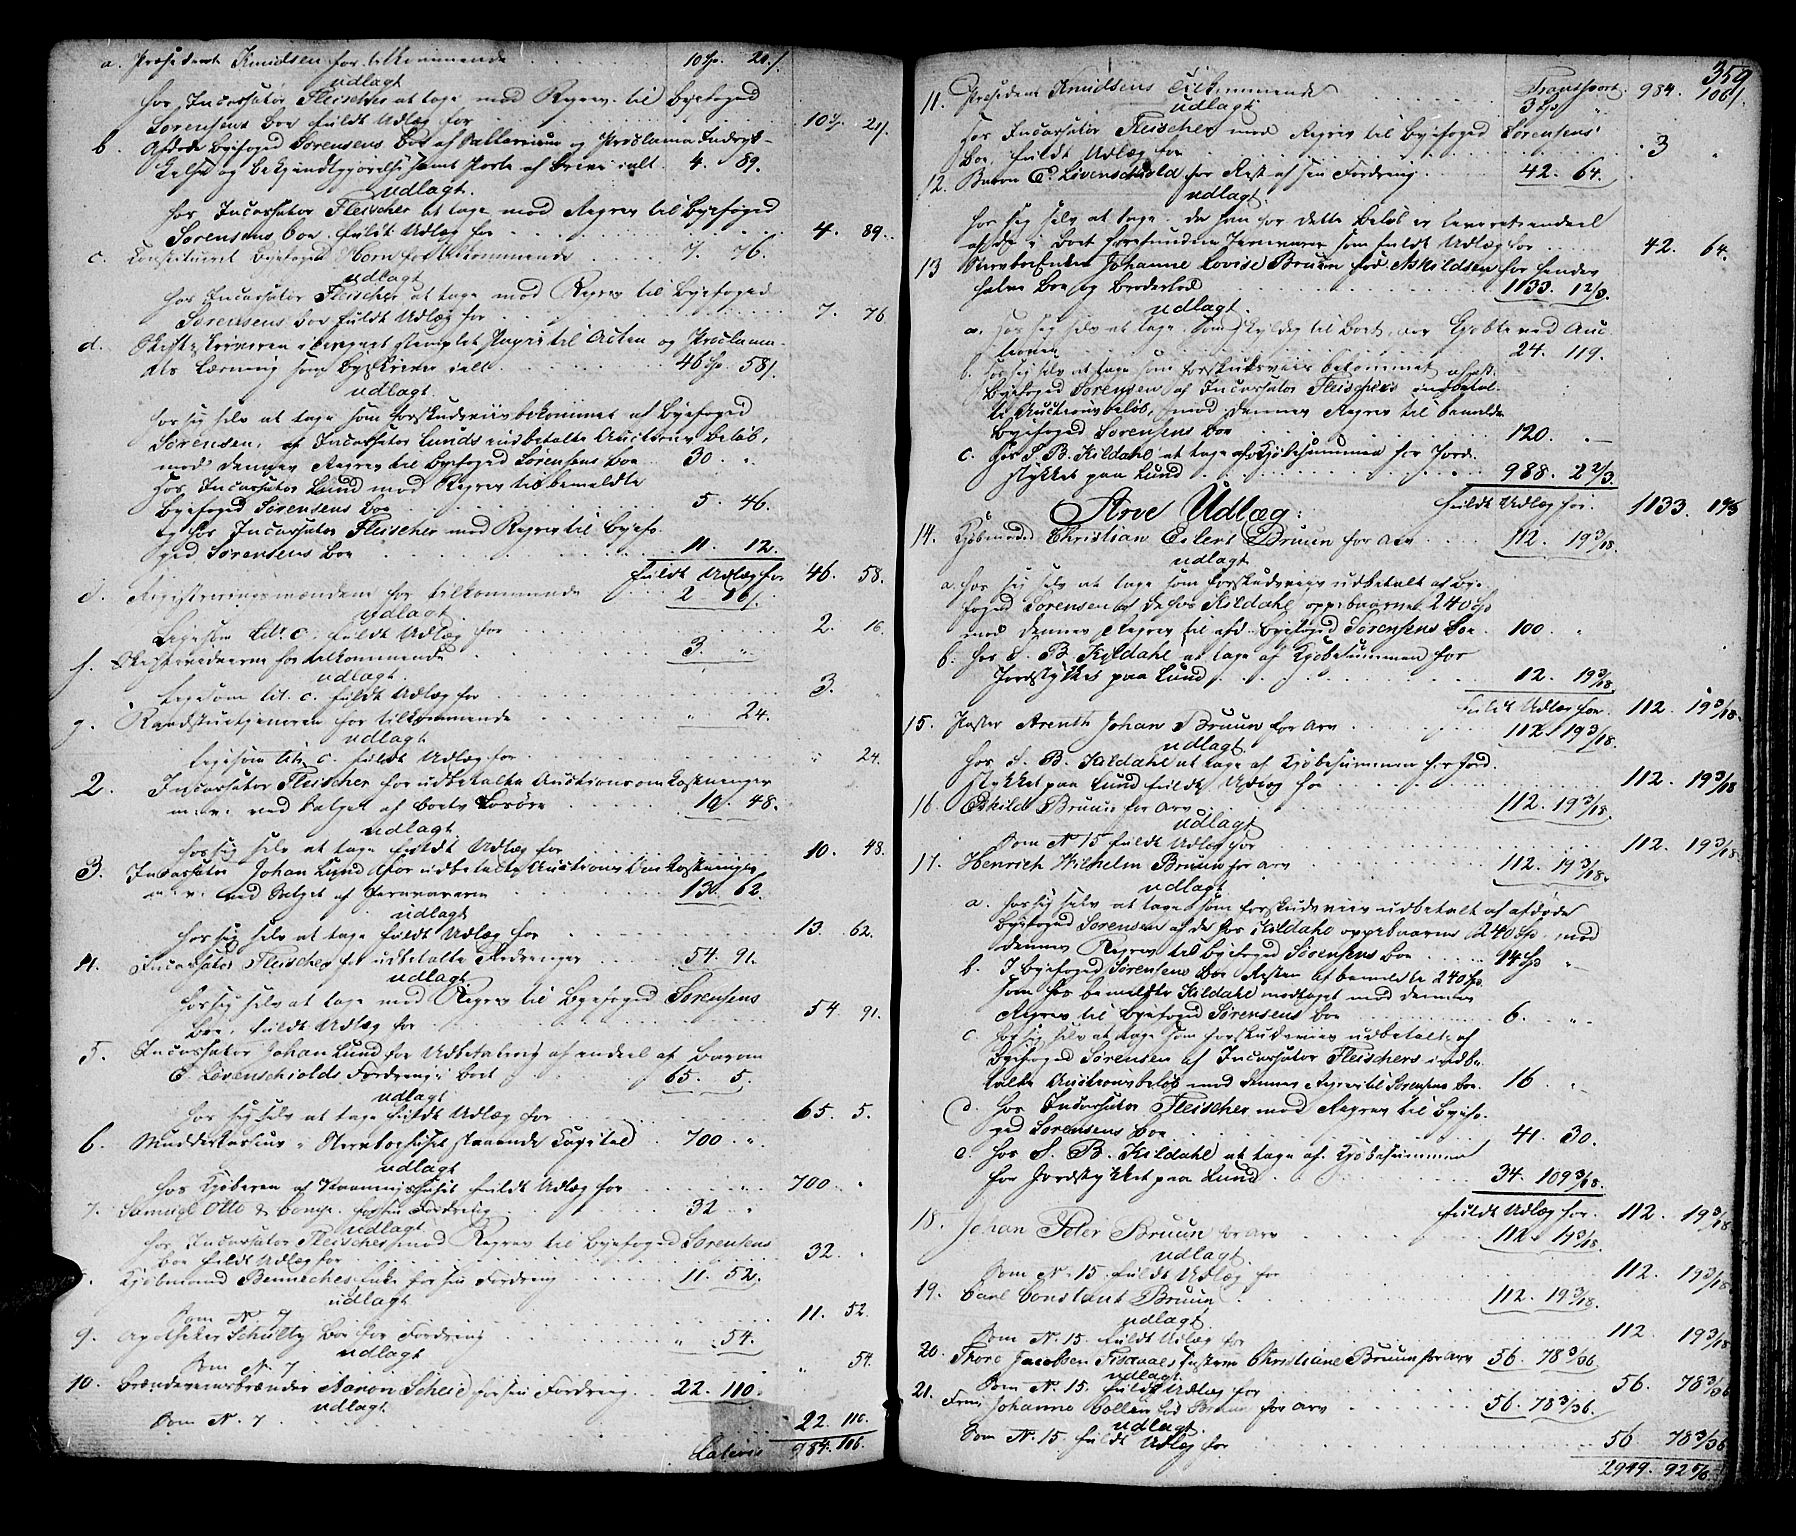 a. Præsident Knudsen for tilkommende 10 Sp. 21 ß
udlagt
hos Incassator Fleischer at tage med Regres til Byefoged
Sørensens Boe fuldt Udlæg for 10 Sp. 21 ß
b. Afdøde Byefoged Sørensens Boe af og Proclama Indryk-
kelse og Bekjendtgjørelse samt Porto af Breve ialt 4. 89.
udlagt.
hos Incassator Fleischer at tage med Regres til Byefoged
Sørensens Boe fuldt Udlæg for 4. 89.
c. Constitueret Byefoged Horn for tilkommende 7. 76.
udlagt
hos Incassator Fleischer at tage med Regres til Byefoged
Sørensens Boe fuldt Udlæg for 7. 76
d. Skifteskriveren beregnet stemplet Papir til Acten og Proclama-
ats Læsning som Byskriver ialt 46 Sp. 58 ß
udlagt.
hos sig selv at tage som forskudsviis bekommet af Byefoged
Sørensen, af Incassator Lunds indbetalte Auctions Beløb,
med dennes Regres til Byefoged Sørensens Boe 30. "
hos Incassator Lund med Regres til bemeldte
Byefoged Sørensens Boe 5. 46.
og hos Incassator Fleischer med Regres til Byefo-
ged Sørensens Boe 11. 12.
fuldt Udlæg for 46. 58.
e. Registreringsmændene for tilkommende 2. 16 ß
udlagt.
Ligesom Litr. c. fuldt Udlæg for 2. 16
f. for tilkommende 3. "
udlagt.
Ligesom lit. c. fuldt Udlæg for 3. "
g. Raadstuetjeneren for tilkommende " 24.
udlagt
Ligesom lit. c. fuldt Udlæg for " 24.
2. Incassator Fleischer for udbetalte Auctionsomkostninger
m. v. ved Salget af Boets Løsøre 10. 48.
udlagt
hos sig selv at tage fuldt Udlæg for 10. 48.
3. Incassator Johan Lund for udbetalte Auctions Omkostninger
m. v. ved Salget af Jernvarerne 13. 62.
udlagt
hos sig selv at tage fuldt Udlæg for 13. 62.
4. Incassator Fleischer for udbetalte Fordringer 54. 91.
udlagt.
hos sig selv at tage med Regres til Byefoged Sørensens
Boe, fuldt Udlæg for 54. 91.
5. Incassator Johan Lund for Udbetaling af endeel af Baron
E. Løvenschiolds Fordring i Boet 65. 5.
udlagt
hos sig selv at tage fuldt Udlæg for 65. 5.
6. i staaende Capital 700. "
udlagt
hos Kjøberen af fuldt Udlæg for 700. "
7. Samuel Otto & Comp. for sin Fordring 32 "
udlagt
hos Incassator Fleischer med Regres til Byefoged Sørensens
Boe fuldt Udlæg for 32. "
Kjøbmand Benneches Enke for sin Fordring 11. 52.
udlagt
Som N. 7 11. 52.
9. Apotheker Schultz Boe for Fordring " 54.
udlagt
Som N. 7 " 54.
10. Brændeviinsbrænder Aaron Scheid for sin Fordring 22. 110.
udlagt
Som N. 7 22. 110.
Lateris 984. 106.
359
Transport 984. 106 ß
11. Præsident Knudsens Tilkommende 3 Sp. "
udlagt
hos Incassator Fleischer med Regres til Byefoged Sørensens
Boe, fuldt Udlæg for 3 "
12. Baron E. Løvenschiold for Rest af sin Fordring 42. 64.
udlagt.
hos sig selv at tage, da han for dette Beløb er leveret endeel
af de i Boet forefundne Jernvarer som fuldt Udlæg for 42. 64.
13 Stervboe Enken Johanne Lovise Bruun fød Askildsen for hendes
halve Boe og Broderlod 1133. 1 2/3.
udlagt.
a. hos sig selv at tage, som skyldig til Boet, for Kjøbte ved Auc-
tionen 24. 119.
b. hos sig selv at tage som forskudsviis bekommet af
Byefoged Sørensen af Incassator Fleischers indbetal-
te Auctionsbeløb, med dennes Regres til bemeldte
Byefoged Sørensens Boe 120. —
c. hos S. B. Kildahl at tage af Kjøbesummen for Jord-
stykket paa Lund 988. 2 2/3.
fuldt Udlæg for 1133.
Arve Udlæg:
14. Kjøbmand Christian Eilert Bruun for Arv 112. 19 3/18.
udlagt
a. hos sig selv at tage som forskudsviis udbetalt af Bye-
foged Sørensen af de hos Kildahl oppebaarne 240 Sp.
med dennes Regres til afd. Byefoged Sørensens Boe 100. "
b. hos S. B. Kildahl at tage af Kjøbesummen for
Jordstykket paa Lund 12. 19 3/18.
fuldt Udlæg for 112. 19 3/18.
15. Arenth Johan Bruun for Arv 112. 19 3/18.
udlagt
hos S. B. Kildahl at tage af Kjøbesummen for Jord-
stykket paa Lund fuldt Udlæg for 112. 19 3/18
16. Eskild Bruun for Arv 112. 19 3/18.
udlagt
Som N. 15 fuldt Udlæg for 112. 19 3/18.
17. Henrich Wilhelm Bruun for Arv 112. 19 3/18.
udlagt
a. hos sig selv at tage som forskudsviis udbetalt af afdøde
Byefoged Sørensen af de hos Kildahl oppebaarne 240 Sp. med
dennes Regres til Byefoged Sørensens Boe 14 Sp. "
b. I Byefoged Sørensens Boe Resten af bemeldte 240 Sp.
som hos bemeldte Kildahl modtaget med dennes
Regres til Byefoged Sørensens Boe 6. "
c. hos sig selv at tage som forskudsviis udbetalt af
Byefoged Sørensen af Incassator Fleischers indbe-
talte Auctionsbeløb med dennes Regres til Sørensens Boe. 16 "
d. hos Incassator Fleischer med Regres til Byefo-
ged Sørensens Boe 41. 30.
e. hos S. B. Kildahl at tage af Kjøbesummen
for Jordstykket paa Lund 34. 109 3/18.
fuldt Udlæg for 112. 19 3/18
18. Johan Peter Bruun for Arv 112. 19 3/18.
udlagt
Som N. 15. fuldt Udlæg for 112. 19 3/18
19. Carl Constant Bruun 112. 19 3/18.
udlagt.
Som N. 15. fuldt Udlæg for 112. 19 3/18
20. Thore Jacobsen Hustru Christiane Bruun for Arv 56. 78 3/36.
udlagt
Som N. 15. fuldt Udlæg for 56. 78 3/36
21. Johanne fød Bruun for Arv 56. 78 3/36.
udlagt
Som N. 15 fuldt Udlæg for 56 78 3/36
2949. 92 5/6